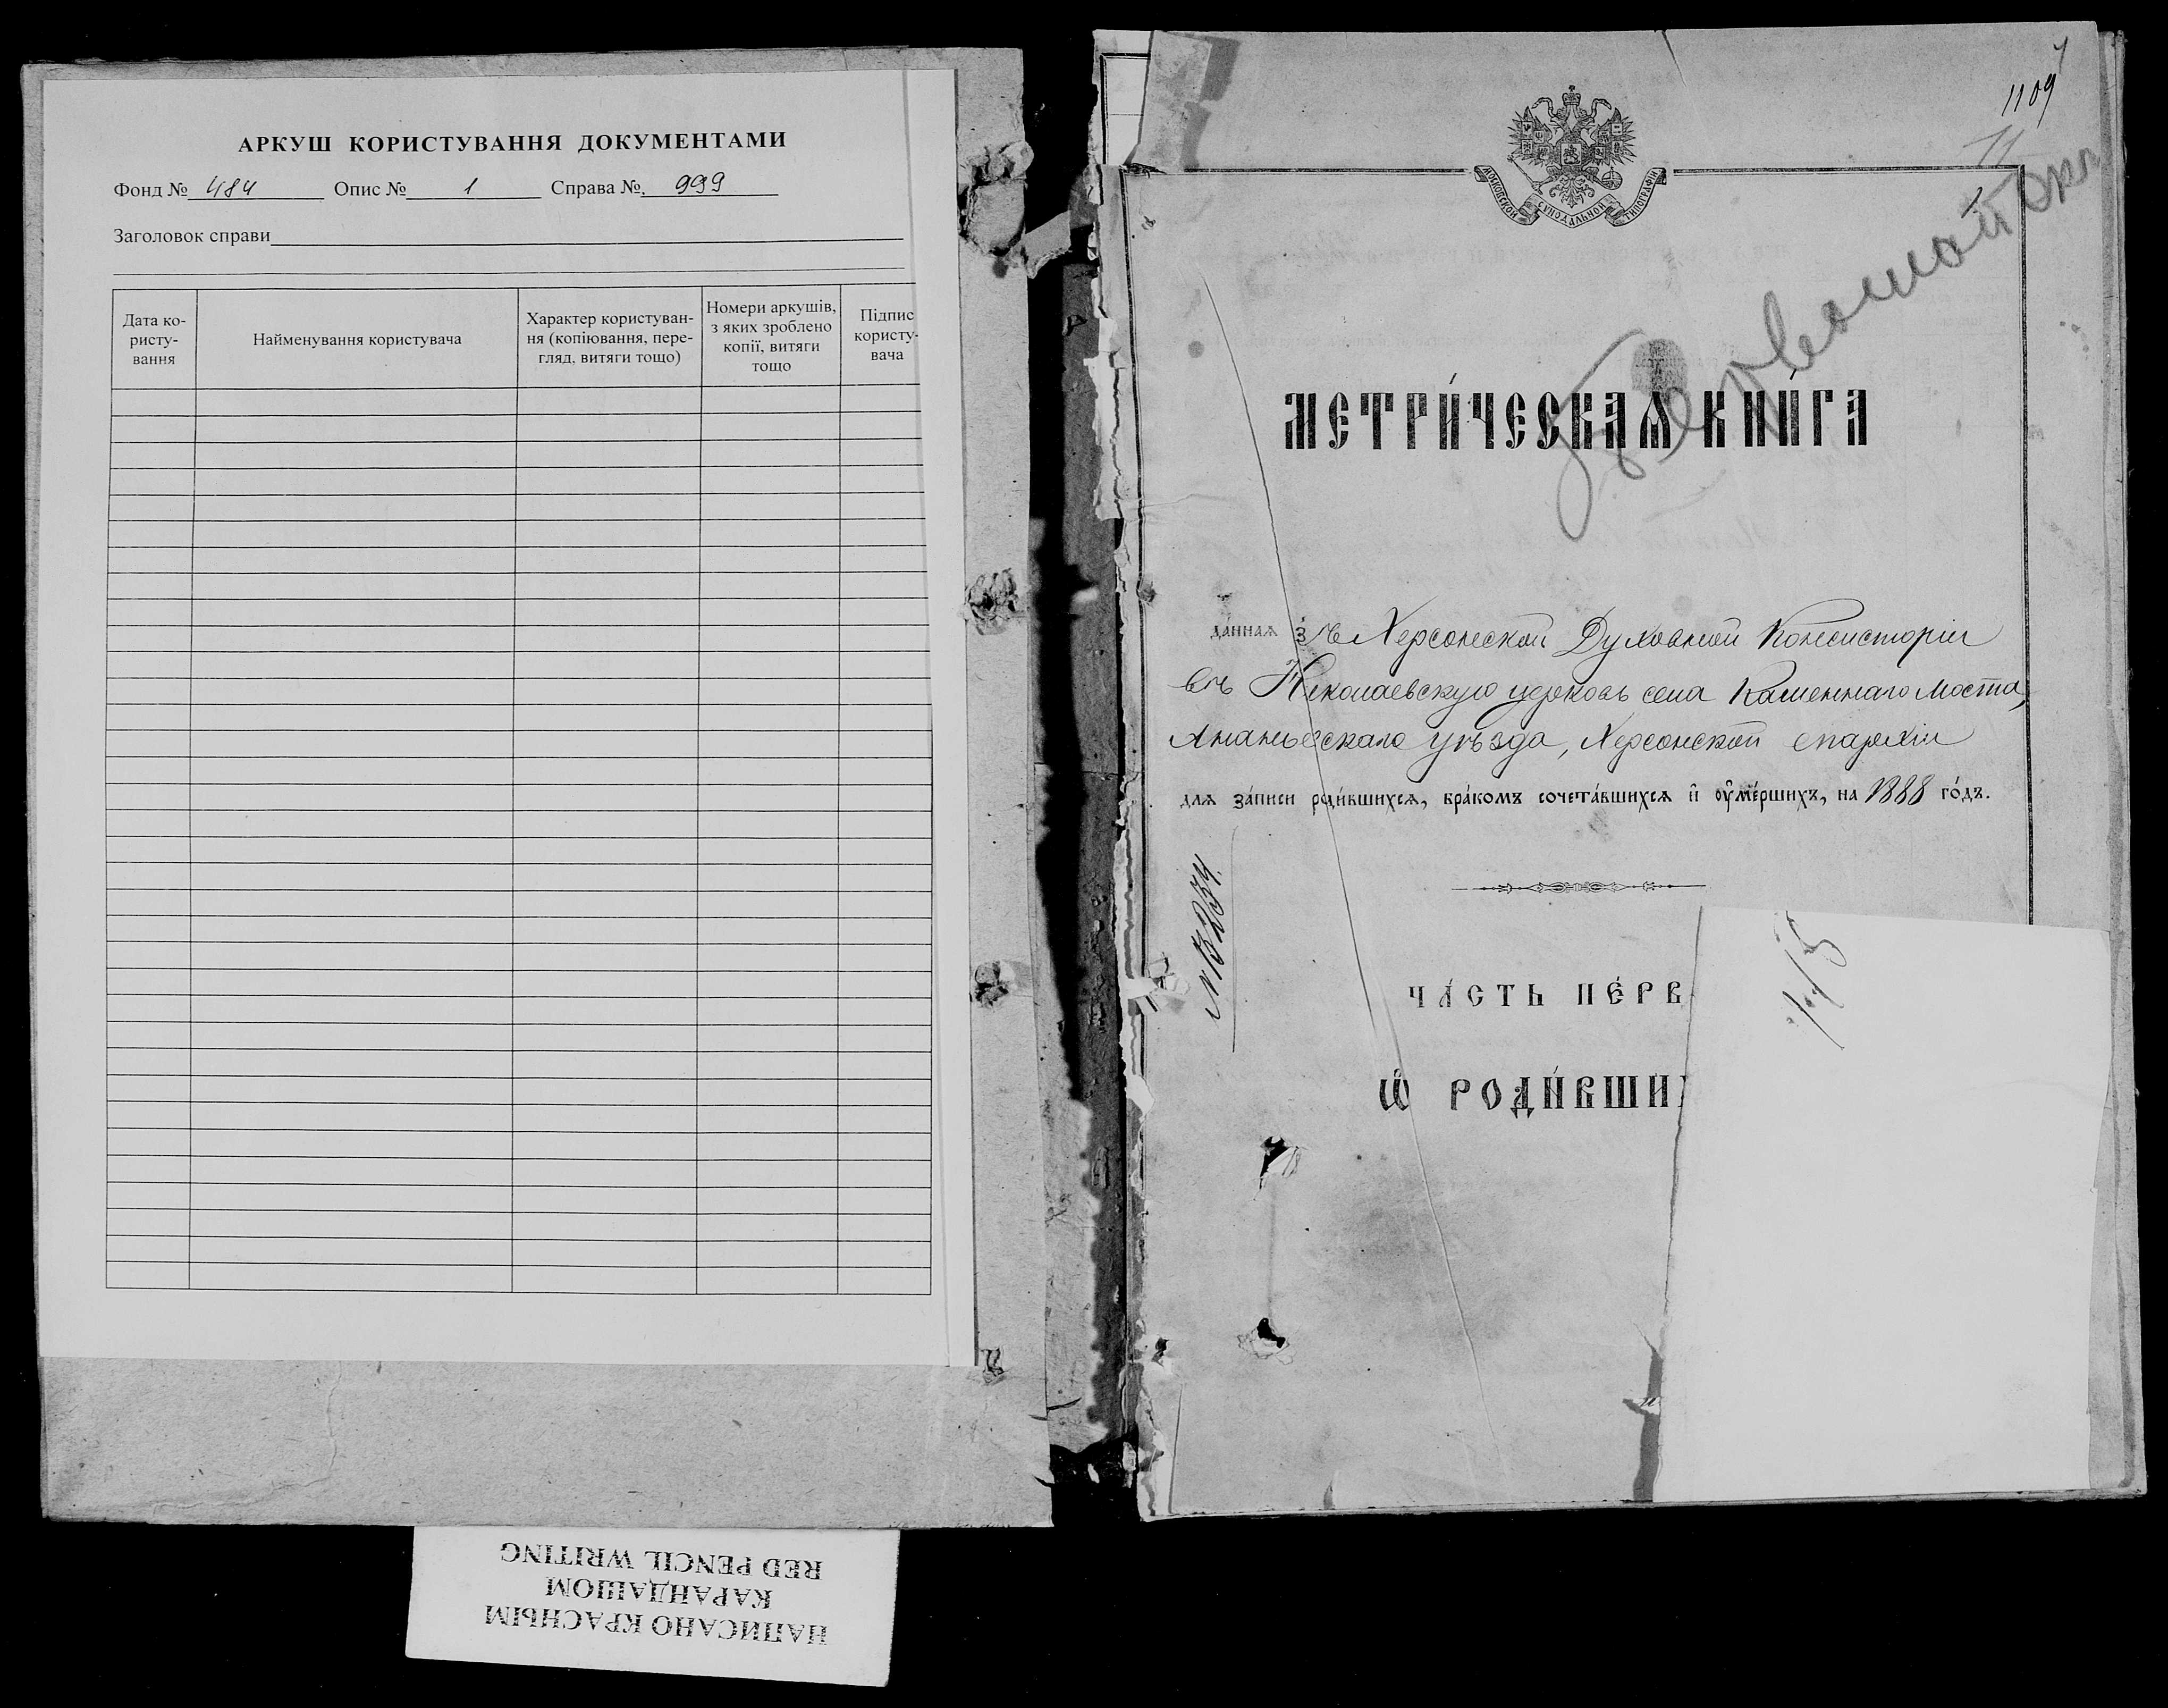 АРКУШ КОРИСТУВАННЯ ДОКУМЕНТАМИ
Фонд № 484 Опис № 1 Справа №. 999
Заголовок справи
Дата ко-
ристу-
вання
Найменування користувача
Характер користуван-
ня (копіювання, пере-
гляд, витяги тощо)
Номери аркушів,
з яких зроблено
копії, витяги
тощо
Підпис
користу-
вача
НАПИСАНО КРАСНЫМ
КАРАНДАШОМ
RED PENCIL WRITING
1109
МОСКОВСКОЙ СѴНОДАЛЬНОЙ ТИПОГРАФІИ
МЕТРИ́ЧЕСКАѦ КНИ́ГА
да́ннаѧ з̾ъ Херсонской Духовной Консисторіи
въ Николаевскую церковь села Каменнаго Моста,
Ананьевскаго уѣзда, Херсонской епархіи
длѧ за́писи роди́вшихсѧ, бра́комъ сочета́вшихсѧ и҆ ᲂу҆ме́ршихъ, на 1888 го́дъ.
№ 3234.
ЧА́СТЬ ПЕ́РВ
Ѡ҆ РОДИ́ВШИ